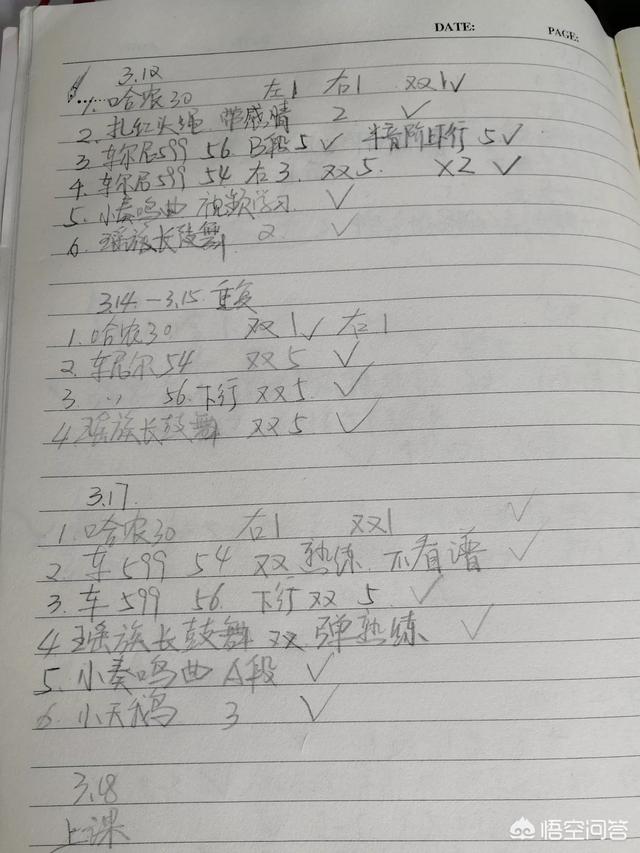 DATE: PAGE:
3.12
1. 哈农30 左1 右1 双1√
2. 扎红头绳 带感情 2 √
3 车尔尼599 56 B段5 √ 半音阶下行 5√
4. 车尔尼599 54 右3. 双5. X2 √
5. 小奏鸣曲 视频学习. √
6. 瑶族长鼓舞 2 √
3.14.—3.15. 重复
1. 哈农30 双1√ 右1
2. 车尼尔54 双5 √
3 〃 56.下行 双5. √
4. 瑶族长鼓舞 双5. √
3.17.
1. 哈农30 右1 双1 √
2. 车599 54 双 熟练. 不看谱 √
3. 车599 56. 下行双 5. √
4 瑶族长鼓舞 双. 弹熟练 √
5. 小奏鸣曲 A段 √
6. 小天鹅 3 √
3.18
上课
悟空问答